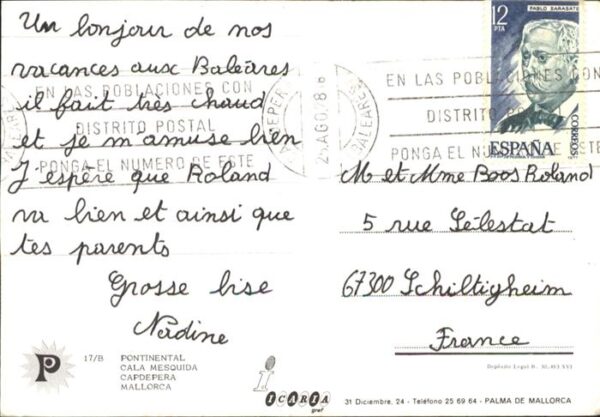 Un bonjour de nos
vacances aux Baléares
il fait très chaud
et je m'amuse bien
J'espère que Roland
va bien et ainsi que
tes parents
Grosse bise
Nadine
EN LAS POBLACIONES CON
DISTRITO POSTAL
PONGA EL NUMERO DE ESTE
BALEARES
EN LAS POBLACIONES CON
DISTRITO
PONGA EL NUMERO DE ESTE
12
PTA
PABLO SARASATE
CORREOS
ESPAÑA
M et Mme Boos Roland
5 rue Sélestat
67300 Schiltigheim
France
P
17/B PONTINENTAL
CALA MESQUIDA
CAPDEPERA
MALLORCA
i
ICARIA
graf
31 Diciembre, 24 - Teléfono 25 69 64 - PALMA DE MALLORCA
Depósito Legal B.